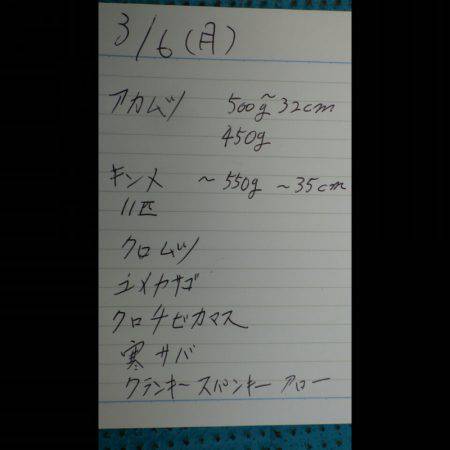 3/6(月)
アカムツ 500g~32cm
450g
キンメ ~550g ~35cm
11匹
クロムツ
ユメカサゴ
クロチビカマス
寒サバ
クランキースパンキーアロー